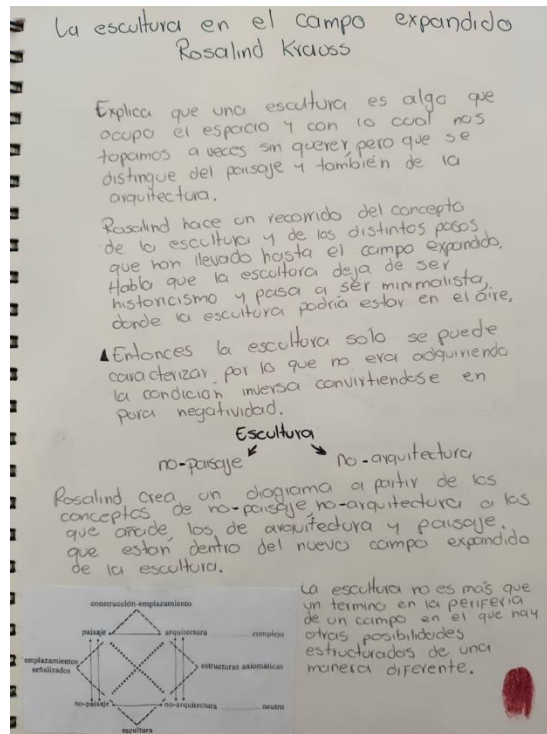 La escultura en el campo expandido
Rosalind Krauss
Explica que una escultura es algo que
ocupa el espacio y con lo cual nos
topamos a veces sin querer, pero que se
distingue del paisaje y también de la
arquitectura.
Rosalind hace un recorrido del concepto
de la escultura y de los distintos pasos
que han llevado hasta el campo expandido.
Habla que la escultura deja de ser
historicismo y pasa a ser minimalista,
donde la escultura podría estar en el aire,
Entonces la escultura solo se puede
caracterizar por lo que no era adquiriendo
la condición inversa convirtiendose en
pura negatividad.
Escultura
no-paisaje no-arquitectura
Rosalind crea un diagrama a partir de los
conceptos de no-paisaje, no-arquitectura a los
que añade, los de arquitectura y paisaje,
que estan dentro del nuevo campo expandido
de la escultura.
construcción-emplazamiento
paisaje arquitectura complejo
emplazamientos
señalizados
estructuras axiomáticas
no-paisaje no-arquitectura neutro
escultura
La escultura no es más que
un termino en la periferia
de un campo en el que hay
otras posibilidades
estructurados de una
manera diferente.